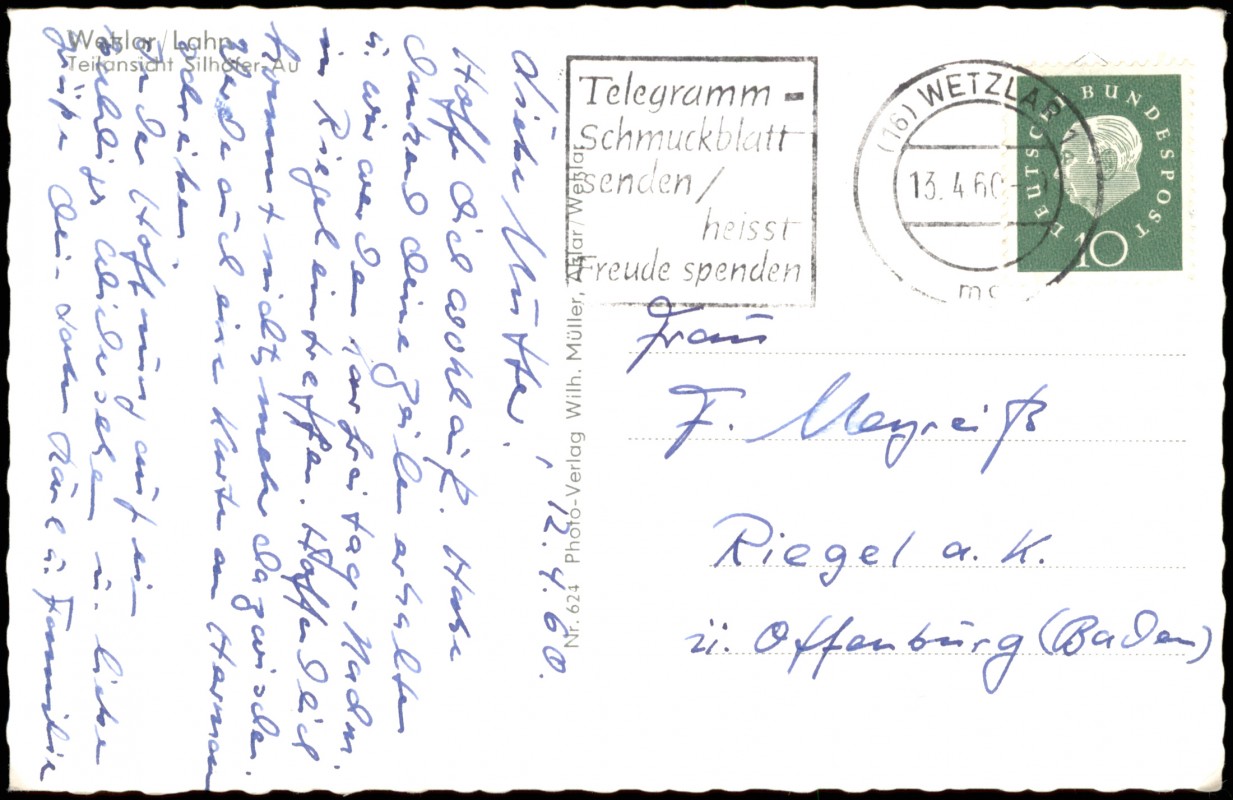 Wetzlar/Lahn
Teilansicht Silhöfer-Au
Liebe Mutter! 12.4.60.
Hoffe dich wohlauf. Habe
dankend deine Zeilen erhalten
u. wir werden Karfreitag-Nachm.
in Riegel eintreffen. Hoffendlich
kommt nichts mehr dazwischen.
Werde auch eine Karte an Herman
schreiben.
In der Hoffnung auf ein
baldiges Wiedersehen u. liebe
Grüße dein Sohn Karl u. Familie
Nr. 624 Photo-Verlag Wilh. Müller, Aßlar/Wetzlar
Telegramm-
Schmuckblatt
senden/
heisst
Freude spenden
(16) WETZLAR 1
13.4.60
mc
DEUTSCHE BUNDESPOST
10
Frau
F. Meyreiß
Riegel a. K.
ü. Offenburg (Baden)